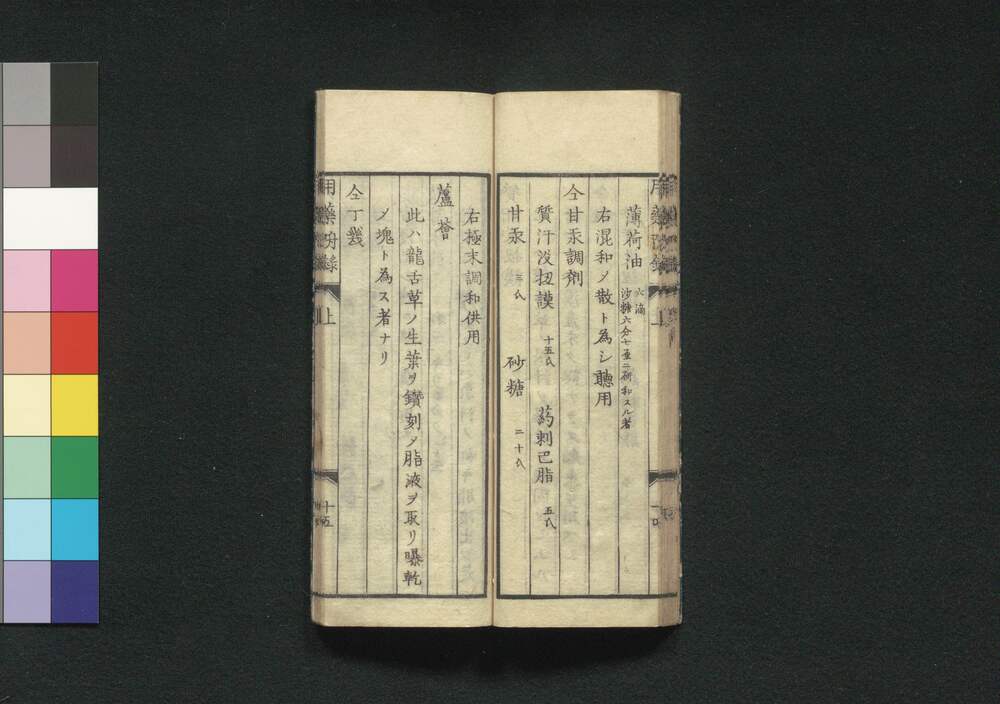 薄荷油 六滴 沙糖六分七釐ニ研和スル者
右混和〆散ト為シ聽用
仝甘汞調劑
質汗没扭謨 十五氏 葯刺巴脂 五氏
甘汞 氏 砂糖 二十氏
右極末調和供用
蘆薈
此ハ龍舌草ノ生葉ヲ鑚刻〆脂液ヲ取リ曝乾
〆塊ト為ス者ナリ
仝丁幾
用藥 上
十五